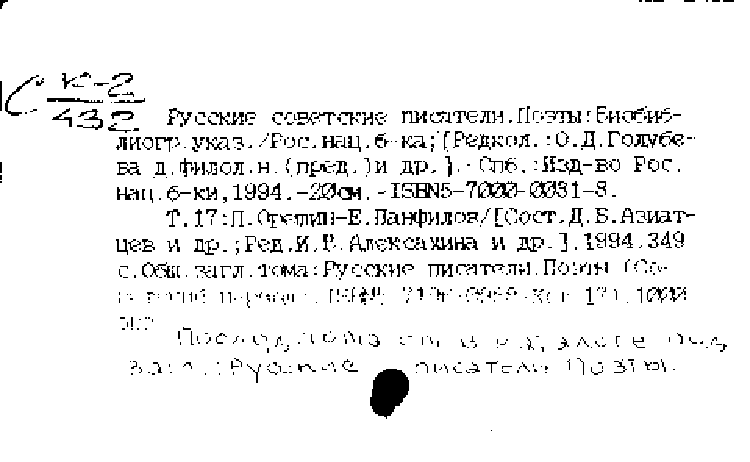 С К-2
432
Русские советские писатели.Поэты:Биобиб-
лиогр.указ./Рос.нац.б-ка;[Редкол.:О.Д.Голубе-
ва д.филол.н.(пред.)и др.].-Спб.:Изд-во Рос.
нац.б-ки,1994.-20см.-ISBN5-7000-0081-8.
Т.17:П.Орешин-Е.Панфилов/[Сост.Д.Б.Азиат-
цев и др.;Ред.И.Г.Алексахина и др.].1994.349
с.Общ.загл.тома:Русские писатели.Поэты (Со-
период). 171.1000
экз
След. тома см. в каталоге под
загл.:Русские писатели Поэты.